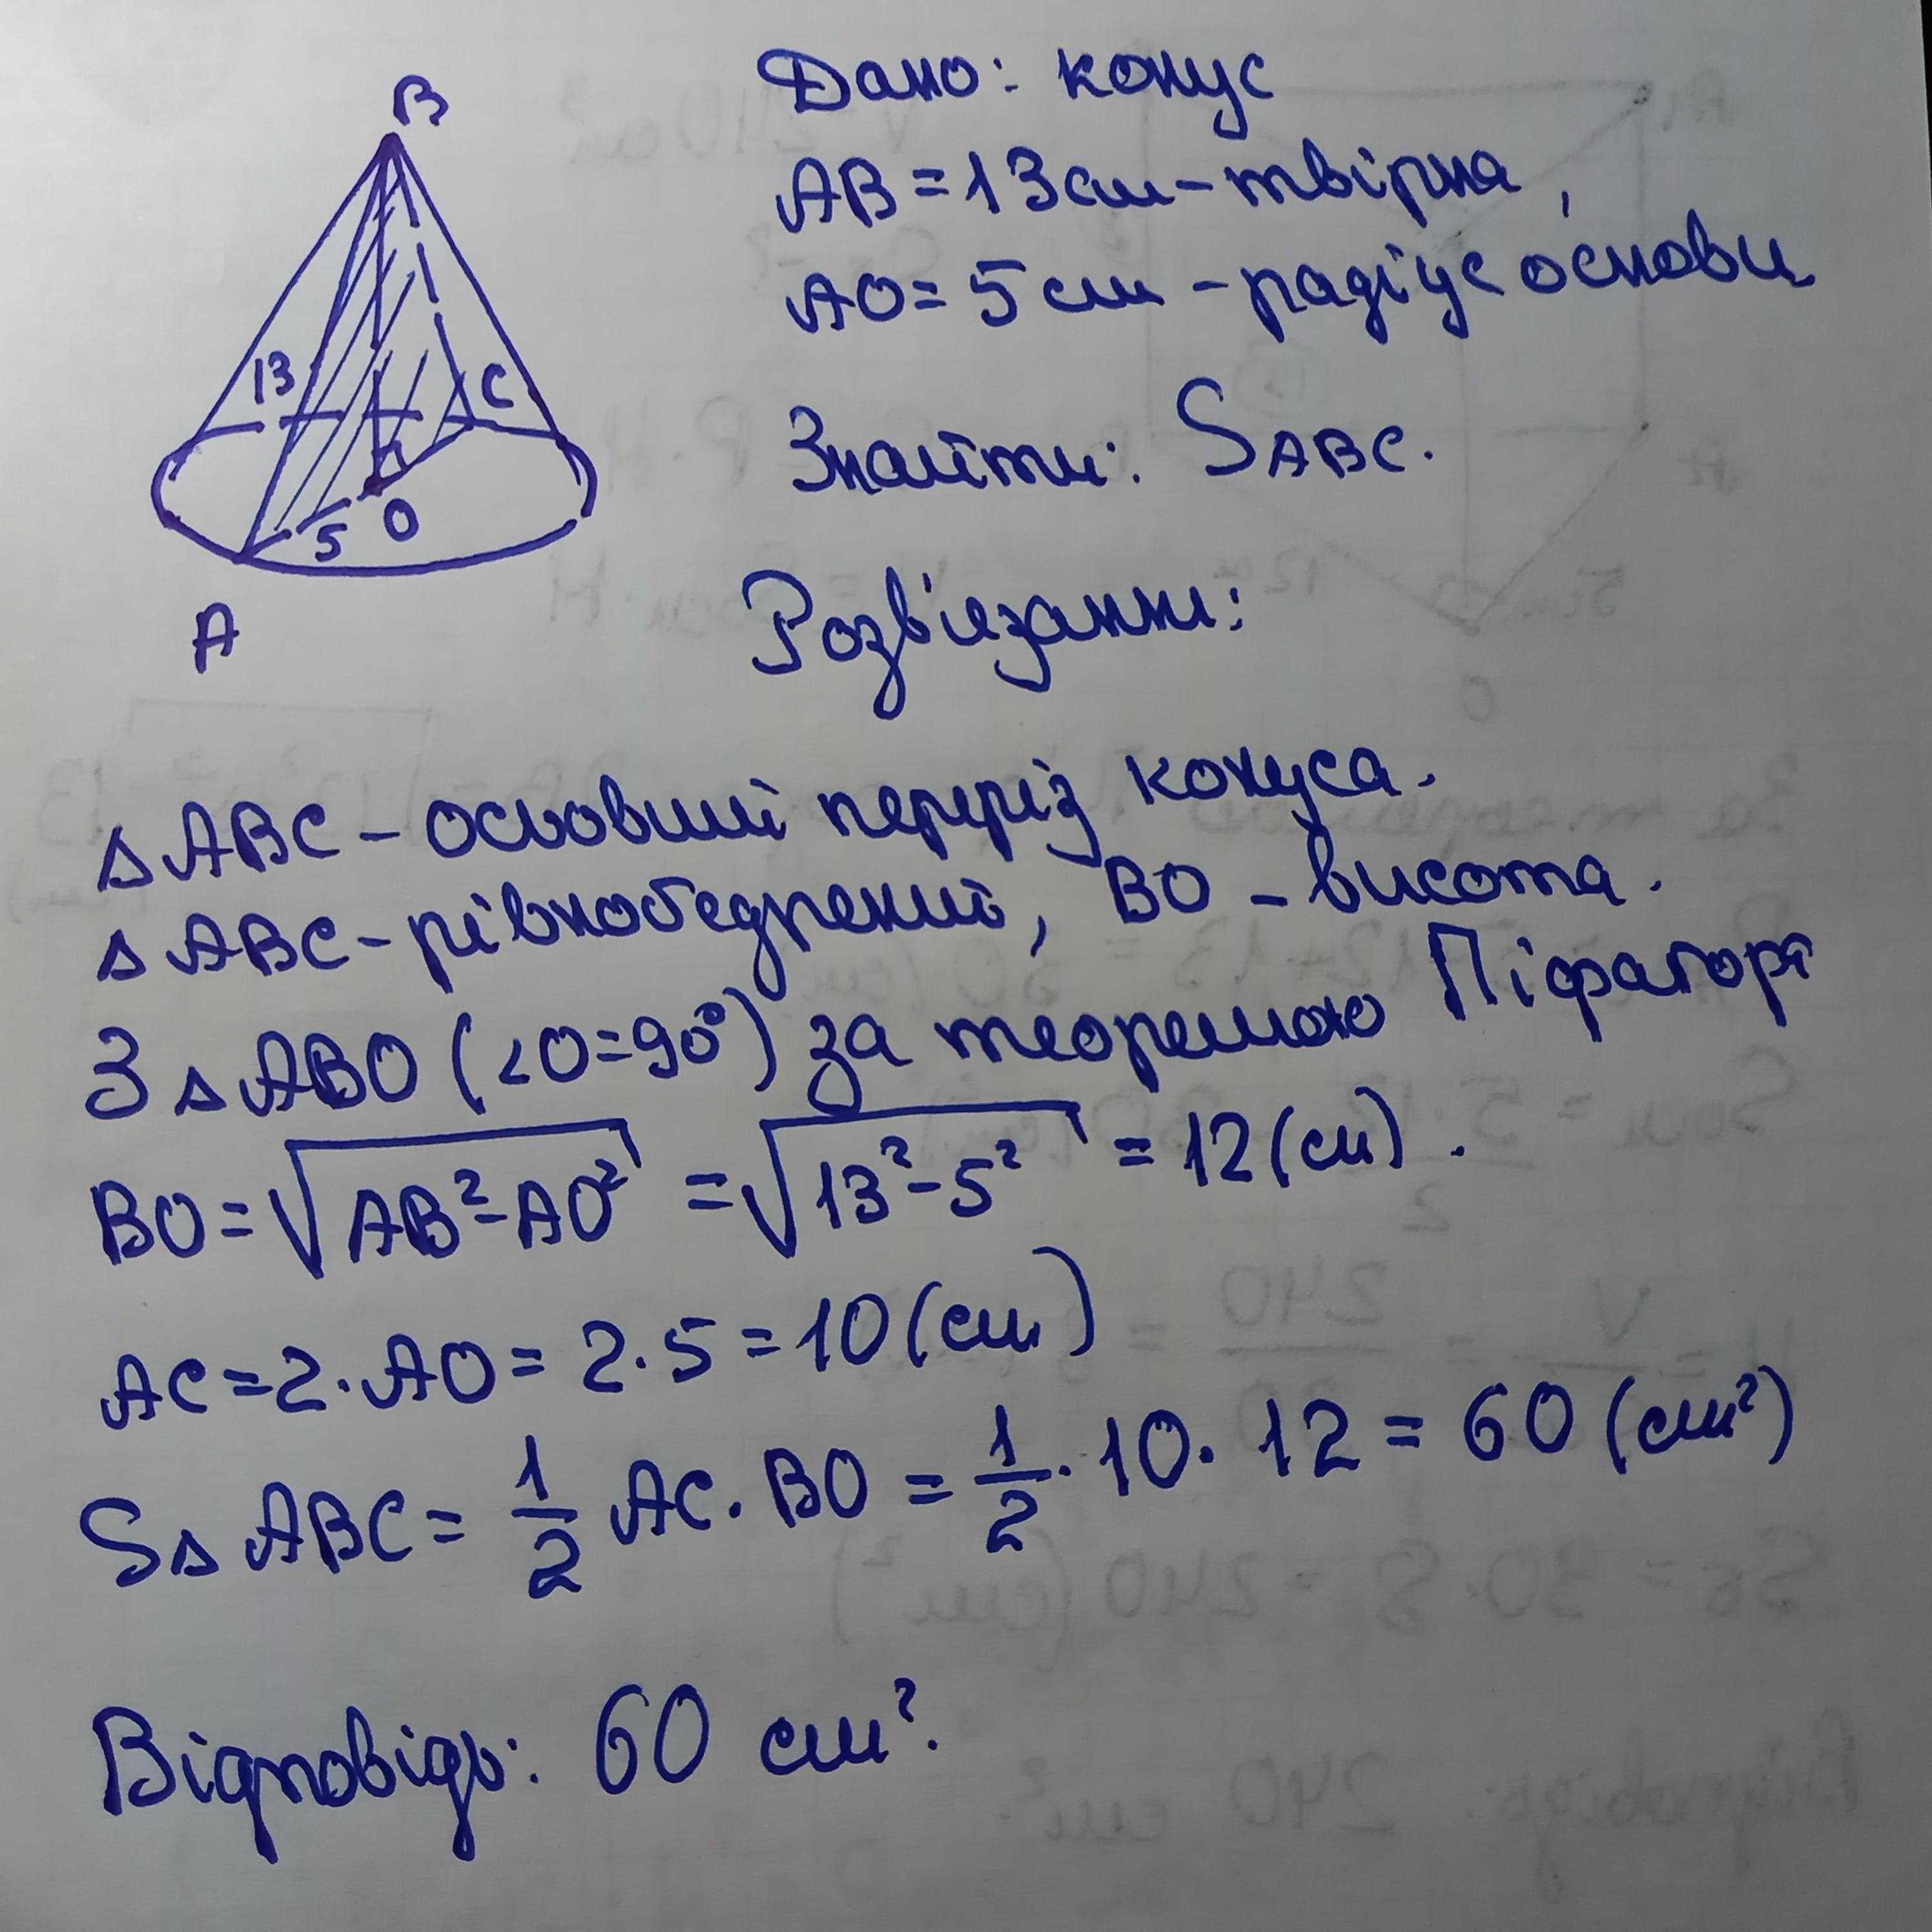 B
13
C
5 O
A
Дано: конус
AB = 13 см - твірна,
AO = 5 см - радіус основи
Знайти: S ABC.
Розв'язання:
△ ABC - осьовий переріз конуса.
△ ABC - рівнобедрений, BO - висота.
З △ ABO (<O=90°) за теоремою Піфагора
BO = √AB² - AO² = √13² - 5² = 12 (см).
AC = 2 · AO = 2 · 5 = 10 (см)
S△ ABC = 1/2 AC · BO = 1/2 · 10 · 12 = 60 (см²)
Відповідь: 60 см².